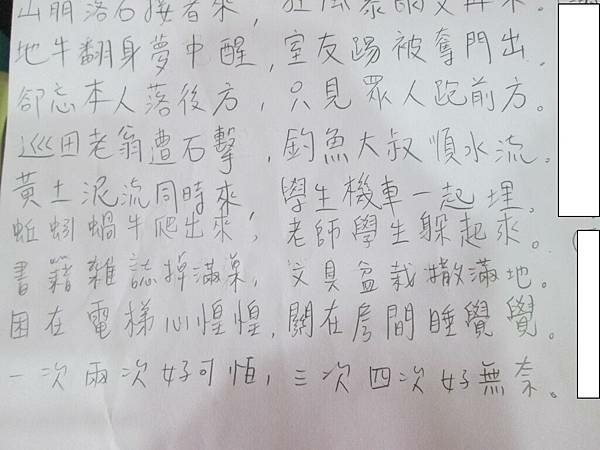 山崩落石接著來，狂風暴雨又再來。
地牛翻身夢中醒，室友踢被奪門出。
卻忘本人落後方，只見眾人跑前方。
巡田老翁遭石擊，釣魚大叔順水流。
黃土泥流同時來，學生機車一起埋。
蚯蚓蝸牛爬出來，老師學生躲起來。
書籍雜誌掉滿桌，文具盆栽撒滿地。
困在電梯心惶惶，關在房間睡覺覺。
一次兩次好可怕，三次四次好無奈。